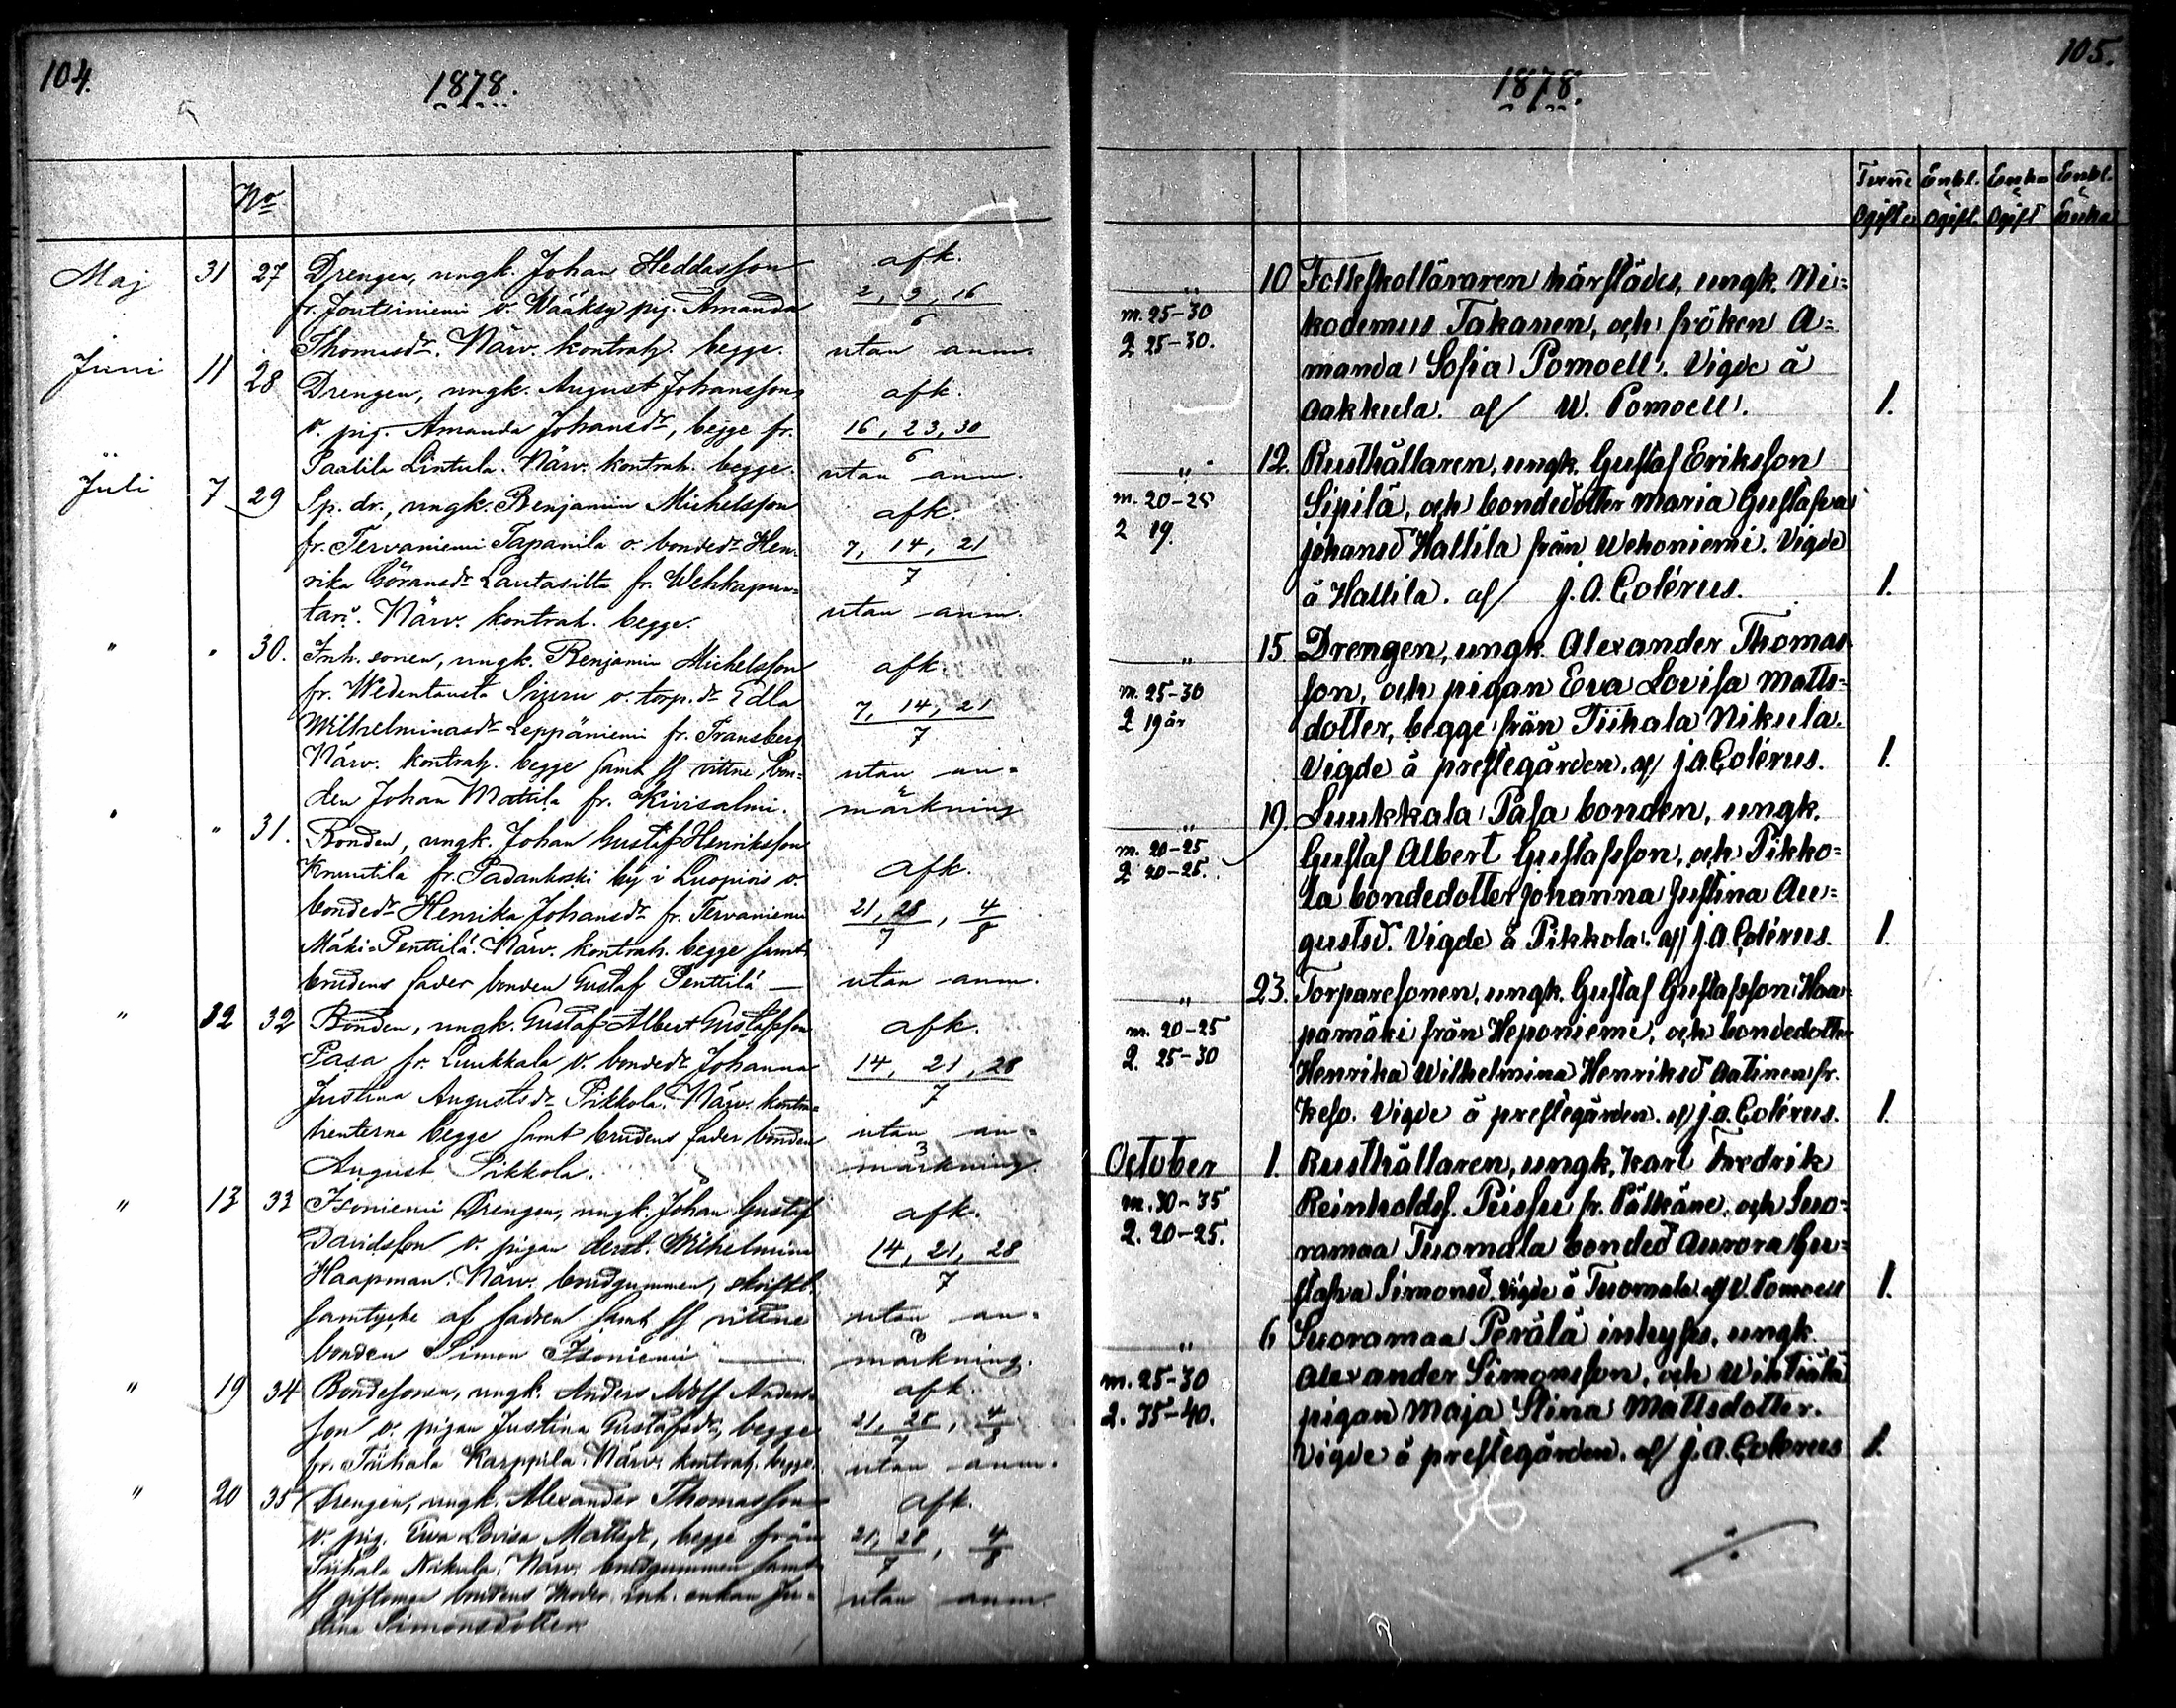 104.
1878.
No
Maj 31 27 Drengen, ungk. Johan Heddasson afk.
fr. Joutsiniemi o. Wääksy pig. Amanda 2, 9, 16
Thomasdr. Närv. kontrah. begge. 6 utan anm.
Juni 11 28 Drengen, ungk. August Johansson afk.
o. pig. Amanda Johansdr, begge fr. 16, 23, 30
Paalila Lintula. Närv. kontrah. begge. 6 utan anm.
Juli 7 29 Sp. dr., ungk. Benjamin Michelsson afk.
fr. Tervaniemi Tapanila o. bondedr Hen- 7, 14, 21
rika Göransdr Lautasilta fr. Wehkapun- 7
tari. Närv. kontrah. begge. utan anm.
" " 30. Inh. sonen, ungk. Benjamin Michelsson afk
fr. Wedentausta o. torp. dr Edla 7, 14, 21
Wilhelminasdr Leppäniemi fr. Fransberg 7
Närv. kontrah. begge samt ss vittne bon- utan an-
den Johan Mattila fr. Kirisalmi. märkning
" " 31. Bonden, ungk. Johan Gustaf Henriksson
Knuutila fr. Padankoski by i Luopiois o. afk.
bondedr Henrika Johansdr fr. Tervaniemi 21, 28, 4
Mäki-Penttilä. Närv. kontrah. begge samt 7 8
brudens fader bonden Gustaf Penttilä — utan anm.
" 12 32 Bonden, ungk. Gustaf Albert Gustafsson afk.
Pasa fr. Luukkala o. bondedr Johanna 14, 21, 28
Justina Augustsdr Pikkola. Närv. kontra- 7
henterna begge samt brudens fader bonden utan an-
August Pikkola. märkning
" 13 33 Isoniemi Drengen, ungk. Johan Gustaf afk.
Davidsson o. pigan derst. Wilhelmina 14, 21, 28
Haapman. Närv. brudgummen, skriftl. 7
samtycke af fadren samt ss vittne utan an-
bonden Simon Isoniemi — märkning.
" 19 34 Bondesonen, ungk. Anders Adolf Anders- afk.
son o. pigan Justina Gustafsdr, begge 21, 28, 4
fr. Tiihala Karppila. Närv. kontrah. begge. 7 8 utan anm.
" 20 35 Drengen, ungk. Alexander Thomasson afk.
o. pig. Eva Lovisa Mattsdr, begge från 21, 28, 4
Tiihala Nikula. Närv. brudgummen samt 7 8
ss giftoman brudens moder Inh. enkan Ju- utan anm.
stina Simonsdotter
105.
1878.
Ogifte Enkl. o Ogift. Enka o Ogift Enkl. o Enka
" 10 Folkskolläraren härstädes, ungk. Ni-
m. 25-30 kodemus Takanen, och fröken A-
q 25-30. manda Sofia Pomoell. Vigde å
Aakkula. af/ W. Pomoell. 1.
" 12. Rusthållaren, ungk. Gustaf Eriksson
m. 20-25 Sipilä, och bondedotter Maria Gustafva
q 19. Johansd Hallila från Wehoniemi. Vigde
å Hallila. af/ J. A. Colérus. 1.
" 15. Drengen, ungk. Alexander Thomas
m. 25-30 son, och pigan Eva Lovisa Matts-
q 19 år dotter, begge från Tiihala Nikula.
Vigde å prestegården. af/ J.A. Colérus. 1.
" 19. Luukkala Pasa bonden, ungk.
m. 20-25 Gustaf Albert Gustafsson, och Pikko-
q 20-25. la bondedotter Johanna Justina Au-
gustsd. Vigde å Pikkola. af/ J.A. Colérus. 1.
" 23. Torparesonen, ungk. Gustaf Gustafsson Haa
m. 20-25 pamäki från Heponiemi, och bondedotter
q. 25-30 Henrika Wilhelmina Henriksd Aatinen fr.
Keso. Vigde å prestegården. af/ J.A. Colérus. 1.
October 1. Rusthållaren, ungk. Karl Fredrik
m. 30-35 Reinholdss. fr. Pälkäne, och Suo-
q. 20-25. ramaa Tuomala bonded Aurora Gu-
stafva Simonsd. Vigde å Tuomala af W. Pomoell 1.
" 6 Suoramaa Perälä inhyses, ungk
m. 25-30 Alexander Simonsson, och
q. 35-40. pigan Maja Stina Mattsdotter.
Vigde å prestegården. af/ J.A. Colérus 1.